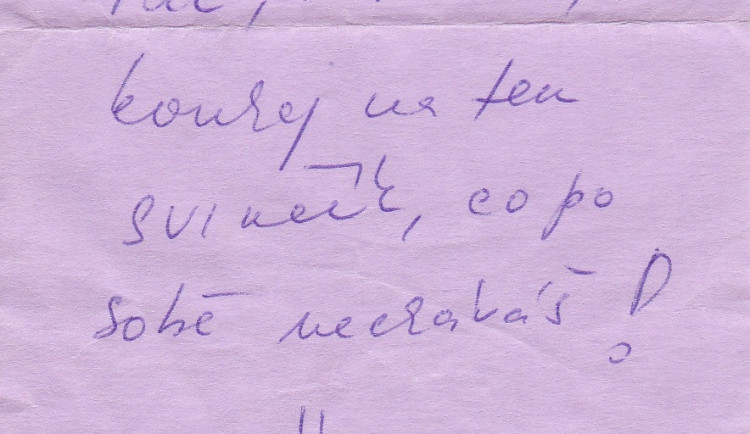 koukej na ten
svinčík, co po
sobě necháváš!